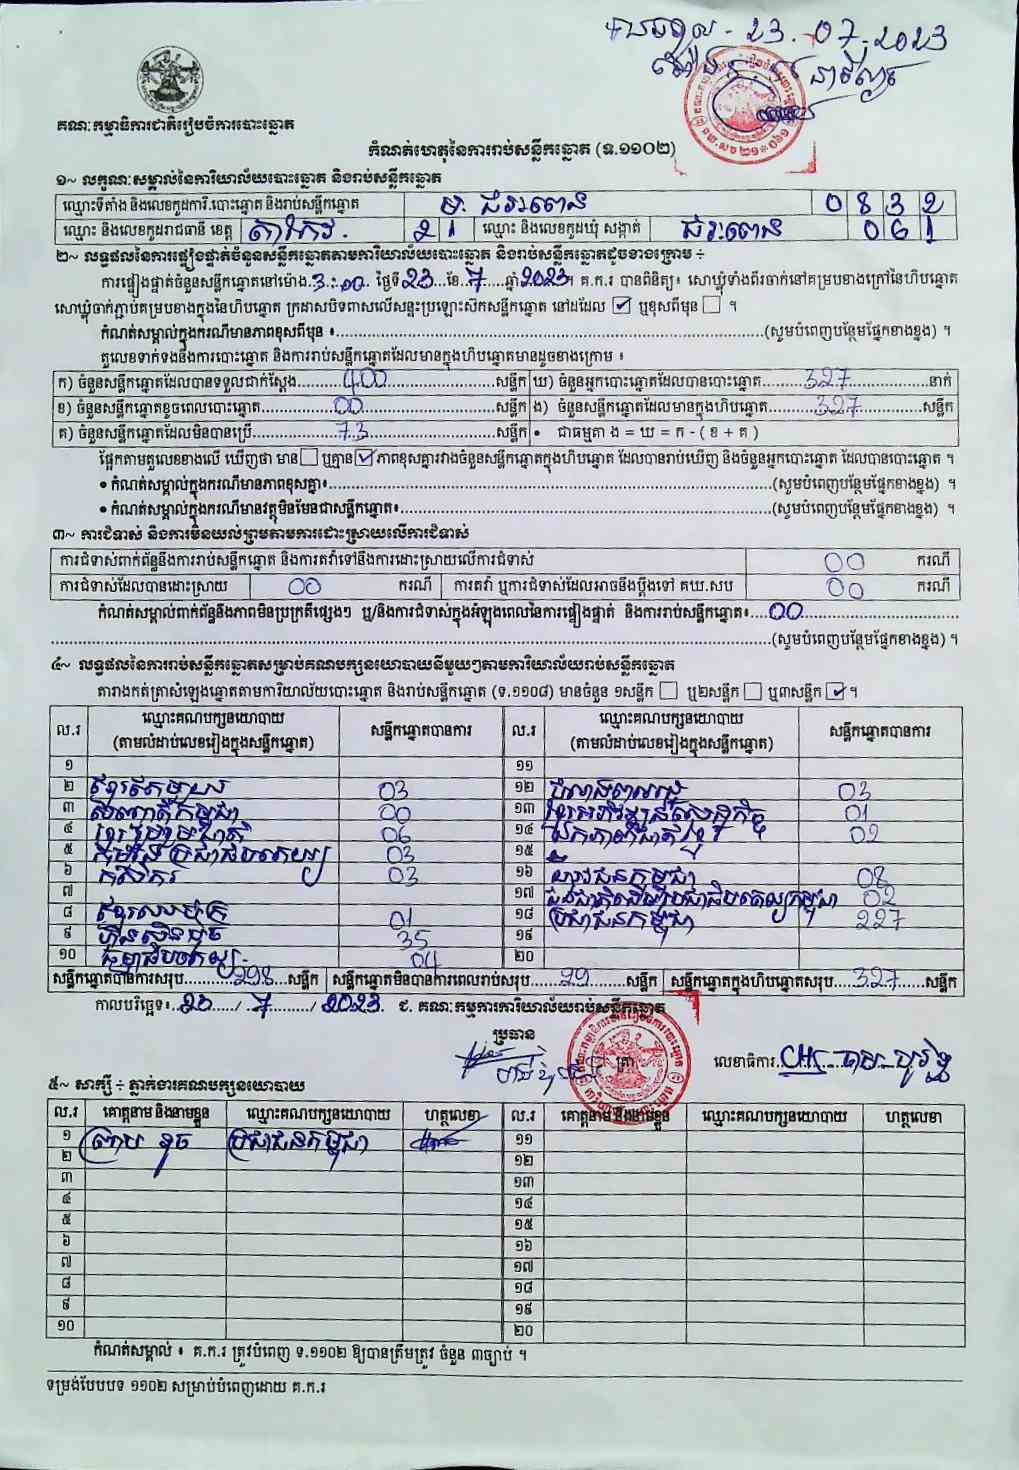 23.07.2023
គណៈកម្មាធិការជាតិរៀបចំការបោះឆ្នោត
កំណត់ហេតុនៃការរាប់សន្លឹកឆ្នោត (ទ.១១០២)
១~ លក្ខណៈសម្គាល់នៃការិយាល័យបោះឆ្នោត និងរាប់សន្លឹកឆ្នោត
ឈ្មោះទីតាំង និងលេខកូដការិ.បោះឆ្នោត និងរាប់សន្លឹកឆ្នោត 0832
ឈ្មោះ និងលេខកូដរាជធានី ខេត្ត តាកែវ. 21 ឈ្មោះ និងលេខកូដឃុំ សង្កាត់ 061
២~ លទ្ធផលនៃការផ្ទៀងផ្ទាត់ចំនួនសន្លឹកឆ្នោតតាមការិយាល័យបោះឆ្នោត និងរាប់សន្លឹកឆ្នោតដូចខាងក្រោម ៖
ការផ្ទៀងផ្ទាត់ចំនួនសន្លឹកឆ្នោតនៅម៉ោង 3:00 ថ្ងៃទី 23 ខែ 7 ឆ្នាំ 2023។ គ.ក.រ បានពិនិត្យ៖ សោឃ្លុំទាំងពីរចាក់នៅគម្របខាងក្រៅនៃហិបឆ្នោត
សោឃ្លុំចាក់ភ្ជាប់គម្របខាងក្នុងនៃហិបឆ្នោត ក្រដាសបិទពាសលើសន្ទះប្រឡោះស៊កសន្លឹកឆ្នោត នៅដដែល ☑ ឬខុសពីមុន ☐ ។
កំណត់សម្គាល់ក្នុងករណីមានភាពខុសពីមុន ៖ (សូមបំពេញបន្ថែមផ្នែកខាងខ្នង) ។
តួលេខទាក់ទងនឹងការបោះឆ្នោត និងការរាប់សន្លឹកឆ្នោតដែលមានក្នុងហិបឆ្នោតមានដូចខាងក្រោម ៖
ក) ចំនួនសន្លឹកឆ្នោតដែលបានទទួលជាក់ស្តែង 400 សន្លឹក ឃ) ចំនួនអ្នកបោះឆ្នោតដែលបានបោះឆ្នោត 327 នាក់
ខ) ចំនួនសន្លឹកឆ្នោតខូចពេលបោះឆ្នោត 00 សន្លឹក ង) ចំនួនសន្លឹកឆ្នោតដែលមានក្នុងហិបឆ្នោត 327 សន្លឹក
គ) ចំនួនសន្លឹកឆ្នោតដែលមិនបានប្រើ 73 សន្លឹក • ជាធម្មតា ង = ឃ = ក - ( ខ + គ )
ផ្អែកតាមតួលេខខាងលើ ឃើញថា មាន ☐ ឬគ្មាន ☑ ភាពខុសគ្នារវាងចំនួនសន្លឹកឆ្នោតក្នុងហិបឆ្នោត ដែលបានរាប់ឃើញ និងចំនួនអ្នកបោះឆ្នោត ដែលបានបោះឆ្នោត ។
• កំណត់សម្គាល់ក្នុងករណីមានភាពខុសគ្នា៖ (សូមបំពេញបន្ថែមផ្នែកខាងខ្នង) ។
• កំណត់សម្គាល់ក្នុងករណីមានវត្ថុមិនមែនជាសន្លឹកឆ្នោត៖ (សូមបំពេញបន្ថែមផ្នែកខាងខ្នង) ។
៣~ ការជំទាស់ និងការមិនយល់ព្រមតាមការដោះស្រាយលើការជំទាស់
ការជំទាស់ពាក់ព័ន្ធនឹងការរាប់សន្លឹកឆ្នោត និងការតវ៉ាទៅនឹងការដោះស្រាយលើការជំទាស់ 00 ករណី
ការជំទាស់ដែលបានដោះស្រាយ 00 ករណី ការតវ៉ា ឬការជំទាស់ដែលអាចនឹងប្តឹងទៅ គឃ.សប 00 ករណី
កំណត់សម្គាល់ពាក់ព័ន្ធនឹងភាពមិនប្រក្រតីផ្សេងៗ ឬ/និងការជំទាស់ក្នុងអំឡុងពេលនៃការផ្ទៀងផ្ទាត់ និងការរាប់សន្លឹកឆ្នោត៖ 00
(សូមបំពេញបន្ថែមផ្នែកខាងខ្នង) ។
៤~ លទ្ធផលនៃការរាប់សន្លឹកឆ្នោតសម្រាប់គណបក្សនយោបាយនីមួយៗតាមការិយាល័យរាប់សន្លឹកឆ្នោត
តារាងកត់ត្រាសំឡេងឆ្នោតតាមការិយាល័យបោះឆ្នោត និងរាប់សន្លឹកឆ្នោត (ទ.១១០៨) មានចំនួន ១សន្លឹក ☐ ឬ២សន្លឹក ☐ ឬ៣សន្លឹក ☑ ។
ល.រ ឈ្មោះគណបក្សនយោបាយ (តាមលំដាប់លេខរៀងក្នុងសន្លឹកឆ្នោត) សន្លឹកឆ្នោតបានការ ល.រ ឈ្មោះគណបក្សនយោបាយ (តាមលំដាប់លេខរៀងក្នុងសន្លឹកឆ្នោត) សន្លឹកឆ្នោតបានការ
១ ១១
២ 03 ១២ 03
៣ 00 ១៣ 01
៤ 06 ១៤ 02
៥ 03 ១៥
៦ កសិករ 03 ១៦ 08
៧ ១៧ 02
៨ 01 ១៨ ប្រជាជនកម្ពុជា 227
៩ 35 ១៩
១០ 04 ២០
សន្លឹកឆ្នោតបានការសរុប 298 សន្លឹក សន្លឹកឆ្នោតមិនបានការពេលរាប់សរុប 29 សន្លឹក សន្លឹកឆ្នោតក្នុងហិបឆ្នោតសរុប 327 សន្លឹក
កាលបរិច្ឆេទ៖ 23 / 7 / 2023. ជ. គណៈកម្មការការិយាល័យរាប់សន្លឹកឆ្នោត
ប្រធាន ត្រា លេខាធិការ
៥~ សាក្សី ៖ ភ្នាក់ងារគណបក្សនយោបាយ
ល.រ គោត្តនាម និងនាមខ្លួន ឈ្មោះគណបក្សនយោបាយ ហត្ថលេខា ល.រ គោត្តនាម និងនាមខ្លួន ឈ្មោះគណបក្សនយោបាយ ហត្ថលេខា
១ ប្រជាជនកម្ពុជា ១១
២ ១២
៣ ១៣
៤ ១៤
៥ ១៥
៦ ១៦
៧ ១៧
៨ ១៨
៩ ១៩
១០ ២០
កំណត់សម្គាល់ ៖ គ.ក.រ ត្រូវបំពេញ ទ.១១០២ ឱ្យបានត្រឹមត្រូវ ចំនួន ៣ច្បាប់ ។
ទម្រង់បែបបទ ១១០២ សម្រាប់បំពេញដោយ គ.ក.រ